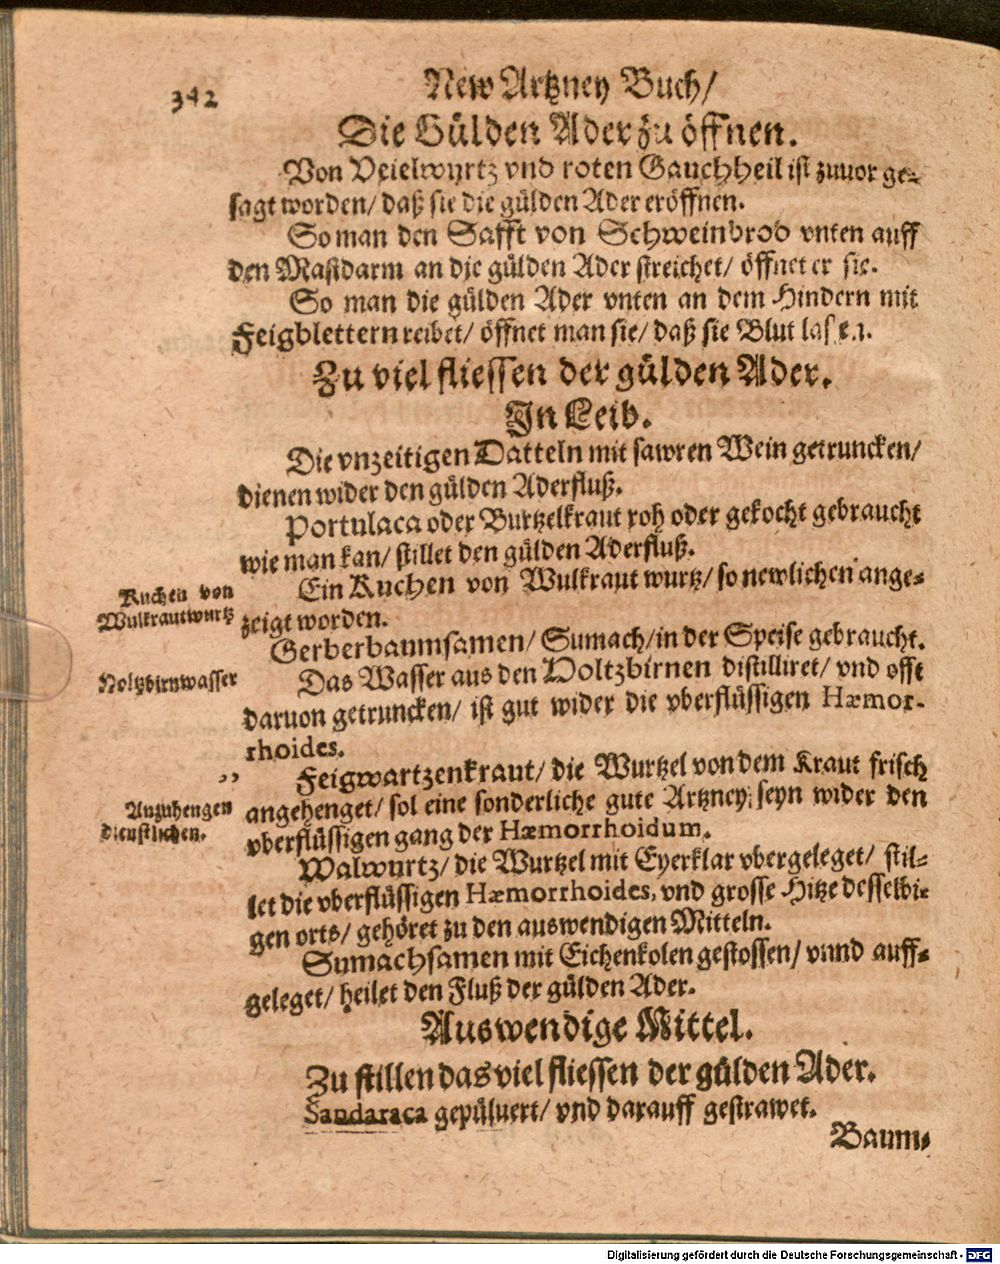 342
New Artzney Buch/
Die Gülden Ader zu öffnen.
Von Veielwurtz vnd roten Gauchheil ist zuuor ge-
sagt worden/ daß sie die gülden Ader eröffnen.
So man den Safft von Schweinbrod vnten auff
den Mastdarm an die gülden Ader streichet/ öffnet er sie.
So man die gülden Ader vnten an dem Hindern mit
Feigblettern reibet/ öffnet man sie/ daß sie Blut lassen.
Zu viel fliessen der gülden Ader.
In Leib.
Die vnzeitigen Datteln mit sawren Wein getruncken/
dienen wider den gülden Aderfluß.
Portulaca oder Burtzelkraut roh oder gekocht gebraucht
wie man kan/ stillet den gülden Aderfluß.
Kuchen von
Wulkrautwurtz
Ein Kuchen von Wulkraut wurtz/ so newlichen ange-
zeigt worden.
Gerberbaumsamen/ Sumach/ in der Speise gebraucht.
Holtzbirnwasser
Das Wasser aus den Holtzbirnen distilliret/ vnd offt
daruon getruncken/ ist gut wider die vberflüssigen Hæmor-
rhoides.
,,
Anzuhengen
dienstlichen.
Feigwartzenkraut/ die Wurtzel von dem Kraut frisch
angehenget/ sol eine sonderliche gute Artzney seyn wider den
vberflüssigen gang der Hæmorrhoidum.
Walwurtz/ die Wurtzel mit Eyerklar vbergeleget/ stil-
let die vberflüssigen Hæmorrhoides, vnd grosse Hitze desselbi-
gen orts/ gehöret zu den auswendigen Mitteln.
Sumachsamen mit Eichenkolen gestossen/ vnnd auff-
geleget/ heilet den Fluß der gülden Ader.
Auswendige Mittel.
Zu stillen das viel fliessen der gülden Ader.
Sandaraca gepüluert/ vnd darauff gestrawet.
Baum-
Digitalisierung gefördert durch die Deutsche Forschungsgemeinschaft - DFG